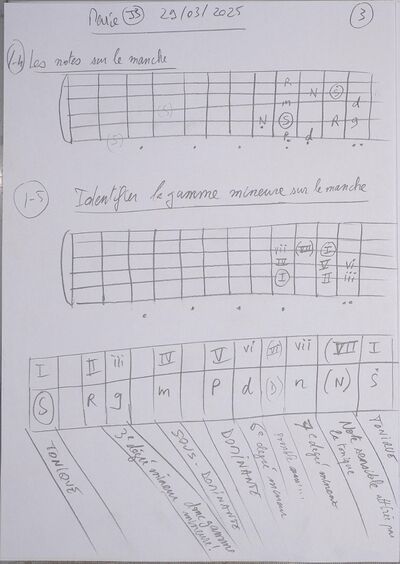 29/03/2025
3
1-4 Les notes sur le manche
R
N S
(S) m d
N S R g
(S) P d
1-5 Identifier la gamme mineure sur le manche
vii (VII) I
IV V vi
I II iii
I II iii IV V vi (VI) vii (VII) I
S R g m P d (D) n (N) S
TONIQUE
3e degré mineur donc gamme mineure!
SOUS DOMINANTE
DOMINANTE
6e degré mineur
7e degré mineur
Note sensible attirée par la tonique
TONIQUE